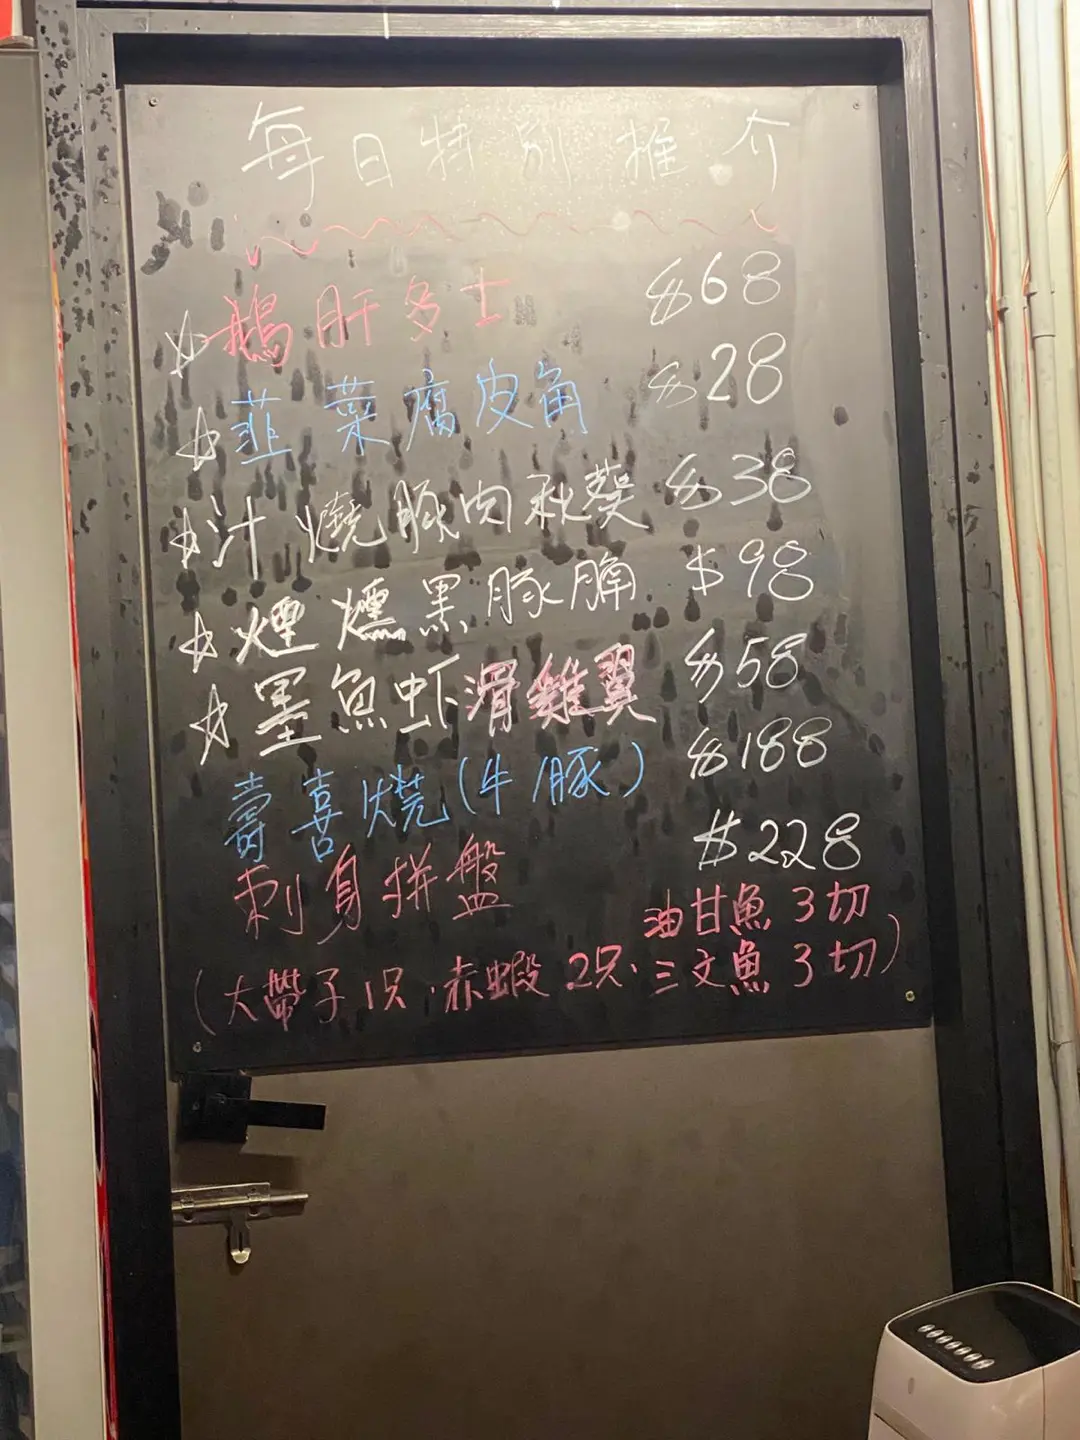 每日特別推介
☆鵝肝多士 $68
☆韮菜腐皮角 $28
☆汁燒豚肉秋葵 $38
☆煙燻黑豚腩 $98
☆墨魚虾滑雞翼 $58
壽喜燒(牛/豚) $188
刺身拼盤 $228
油甘魚 3切
(大帶子1只·赤蝦2只·三文魚 3切)